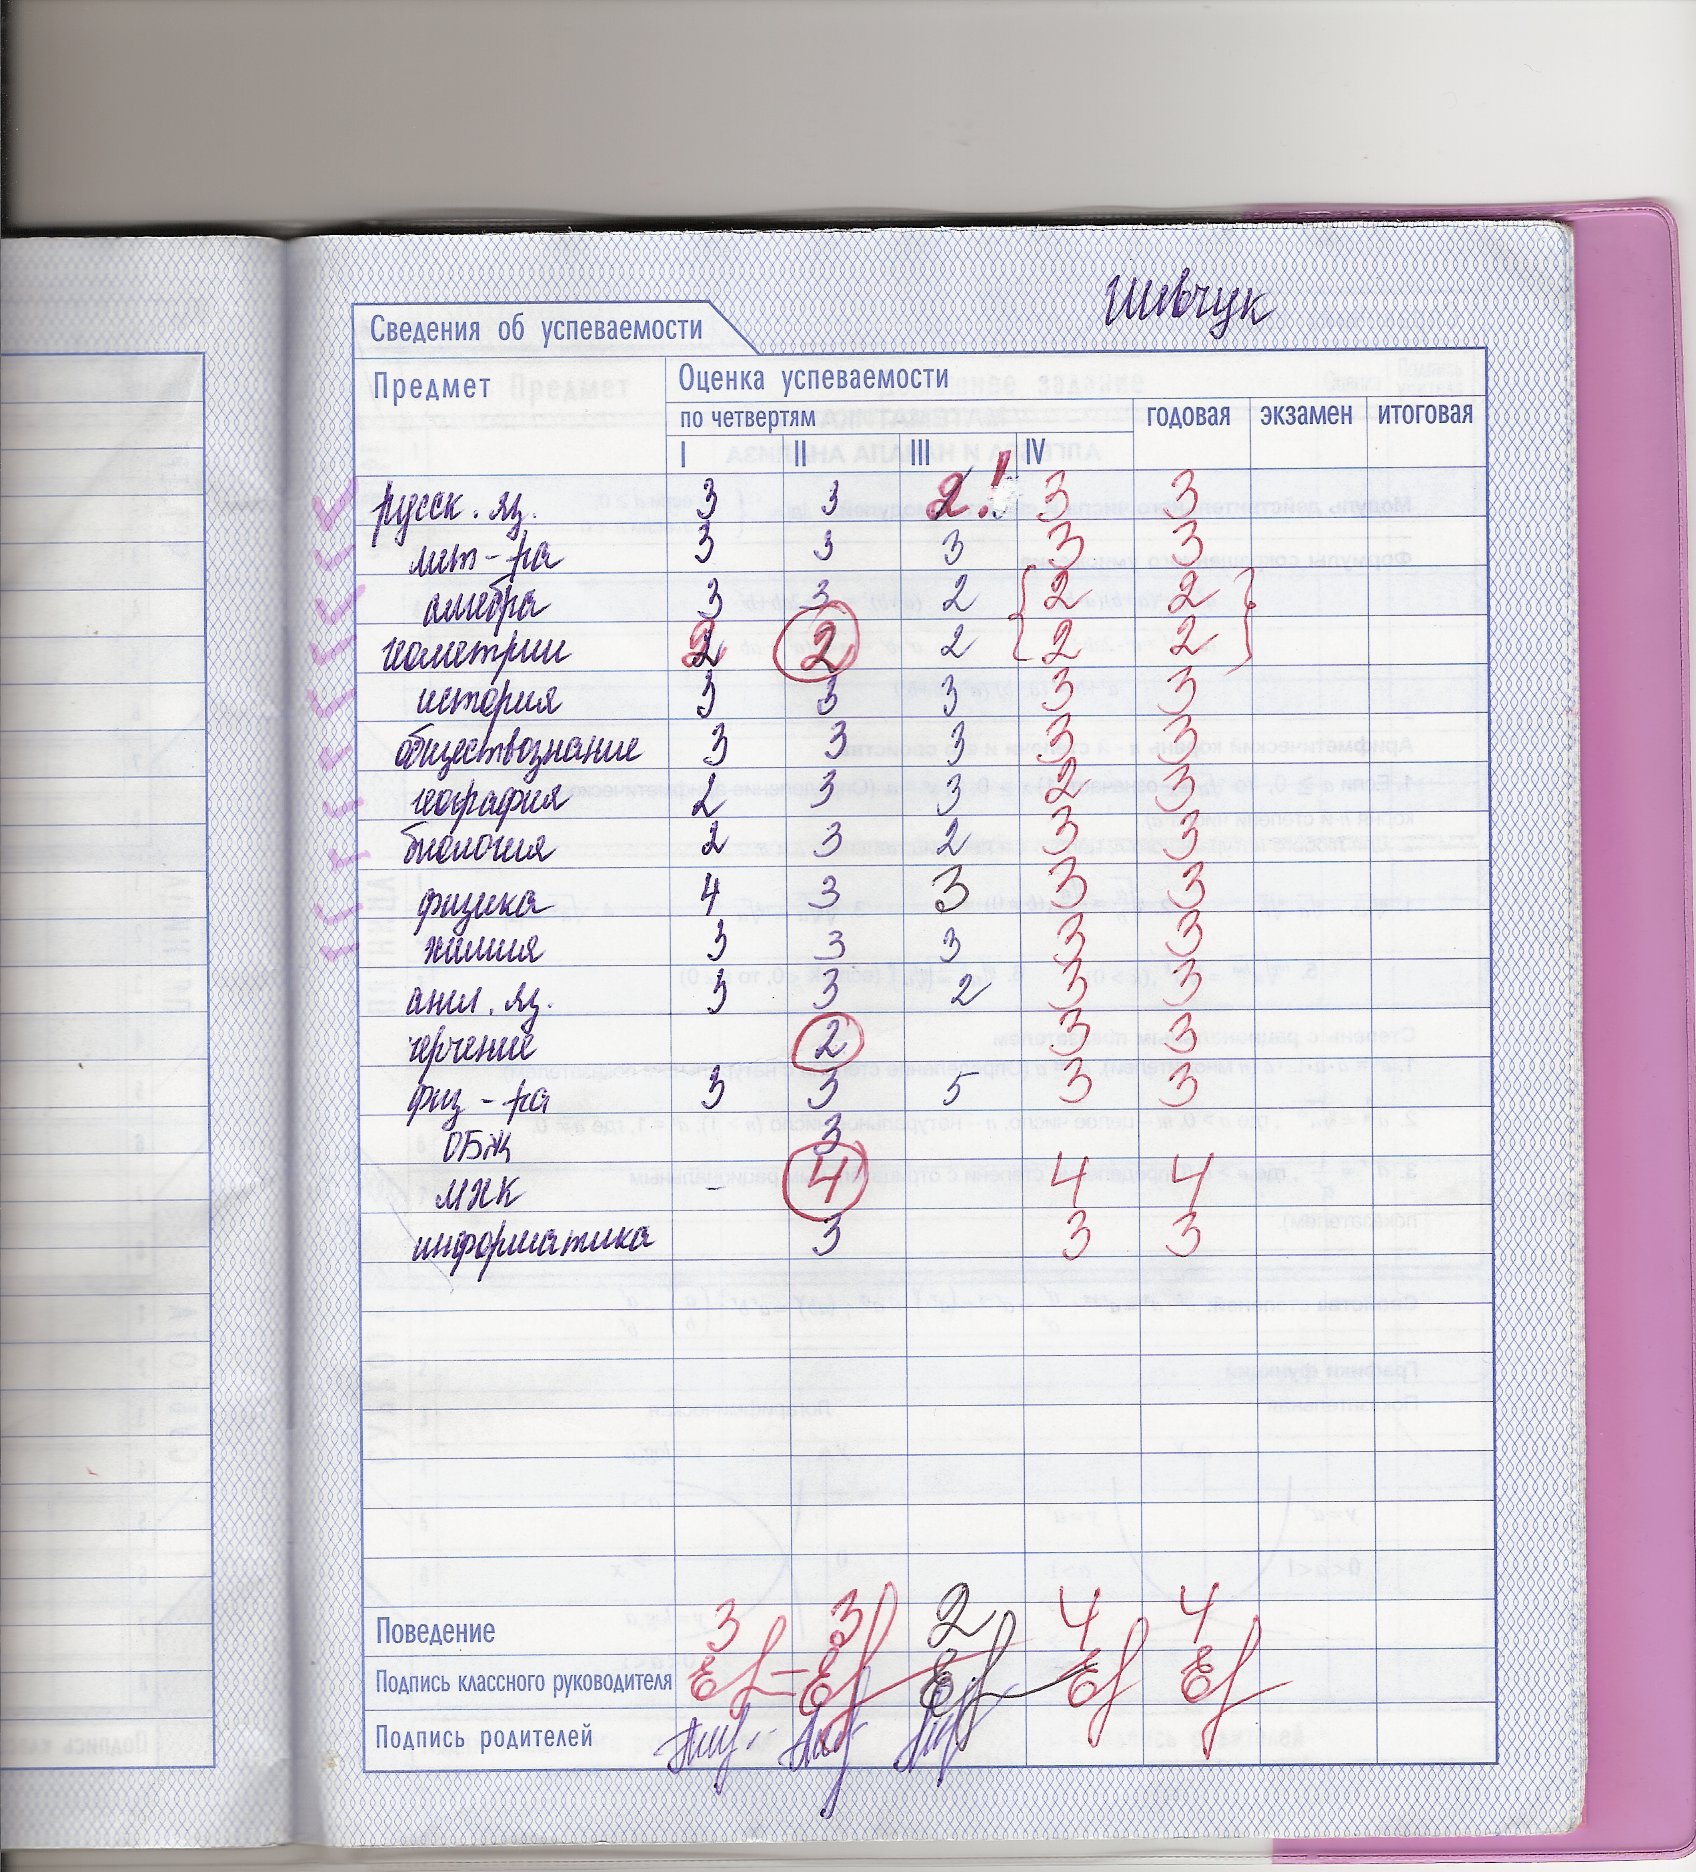 Шевчук
Сведения об успеваемости
Предмет Оценка успеваемости
по четвертям годовая экзамен итоговая
I II III IV
русск. яз. 3 3 2! 3 3
лит-ра 3 3 3 3 3
алгебра 3 3 2 2 2
геометрии 2 2 2 2 2
история 3 3 3 3 3
обществознание 3 3 3 3 3
география 2 3 3 2 3
биология 2 3 2 3 3
физика 4 3 3 3 3
химия 3 3 3 3 3
англ. яз. 3 3 2 3 3
черчение 2 3 3
физ-ра 3 3 5 3 3
ОБЖ 3
МХК - 4 4 4
информатика 3 3 3
Поведение 3 3 2 4 4
Подпись классного руководителя
Подпись родителей